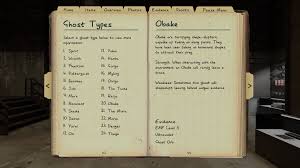 Ghost Types
Select a ghost type below for see more
information
1. Spirit
2. Wraith
3. Phantom
4. Poltergeist
5. Banshee
6. Jinn
7. Mare
8. Revenant
9. Shade
10. Demon
11. Yurei
12. Oni
13. Yokai
14. Hantu
15. Goryo
16. Myling
17. Onryo
18. The Twins
19. Raiju
20. Obake
21. The Mimic
22. Moroi
23. Deogen
24. Thaye
Obake
Obake are terrifying shape-shifters,
capable of taking on many forms. They
have been seen taking on humanoid shapes
to attract their prey.
Strength: When interacting with the
environment, an Obake will rarely leave a
trace.
Weakness: Sometimes this ghost will
shapeshift, leaving behind unique evidence.
Evidence
EMF Level 5
Ultraviolet
Ghost Orb